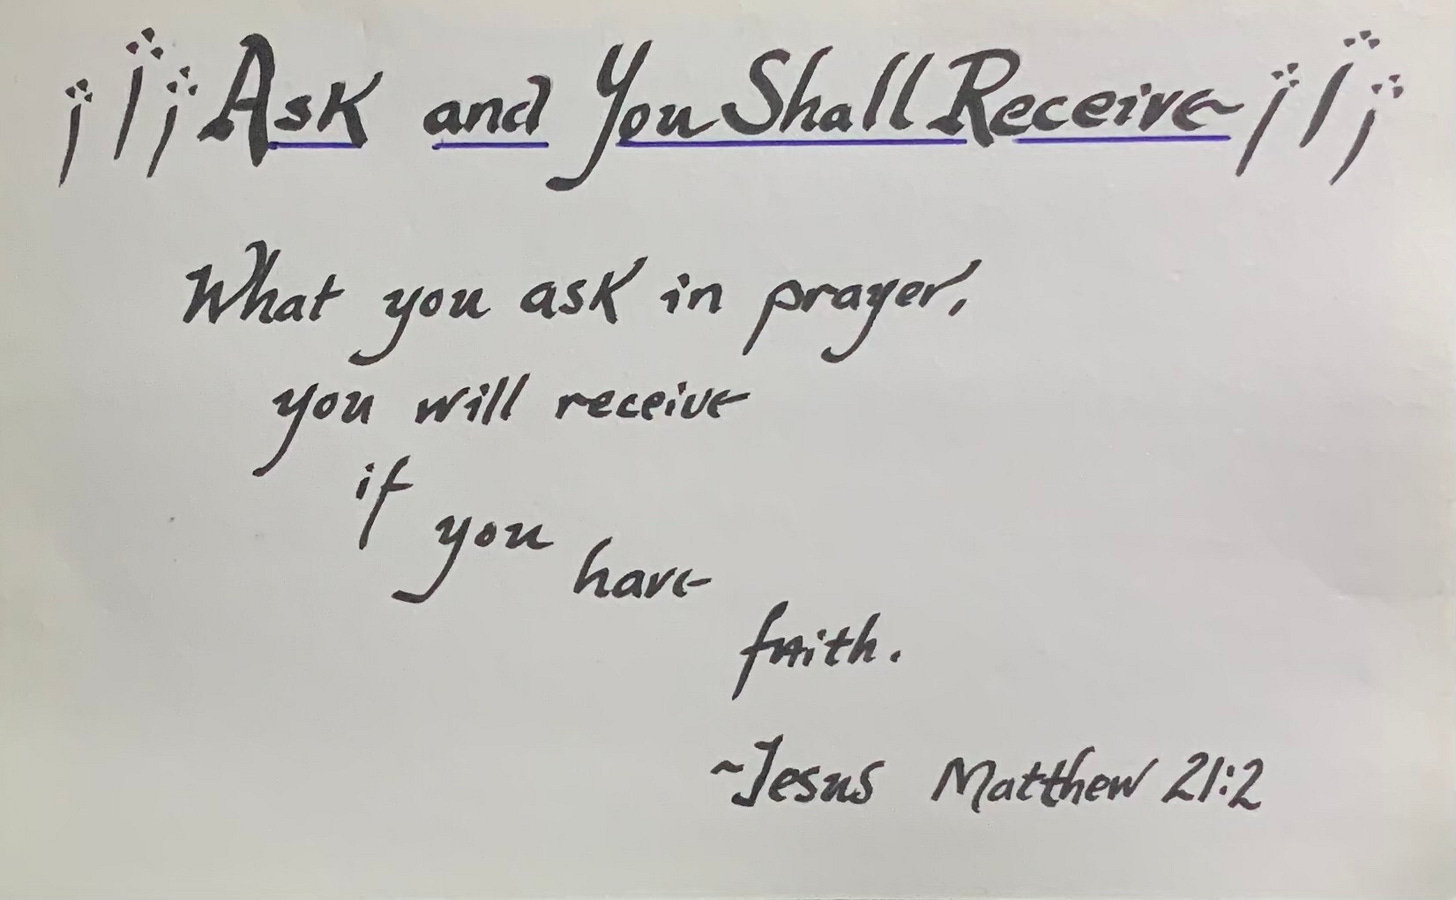 Ask and You Shall Receive
What you ask in prayer,
you will receive
if you have
faith.
~Jesus Matthew 21:2